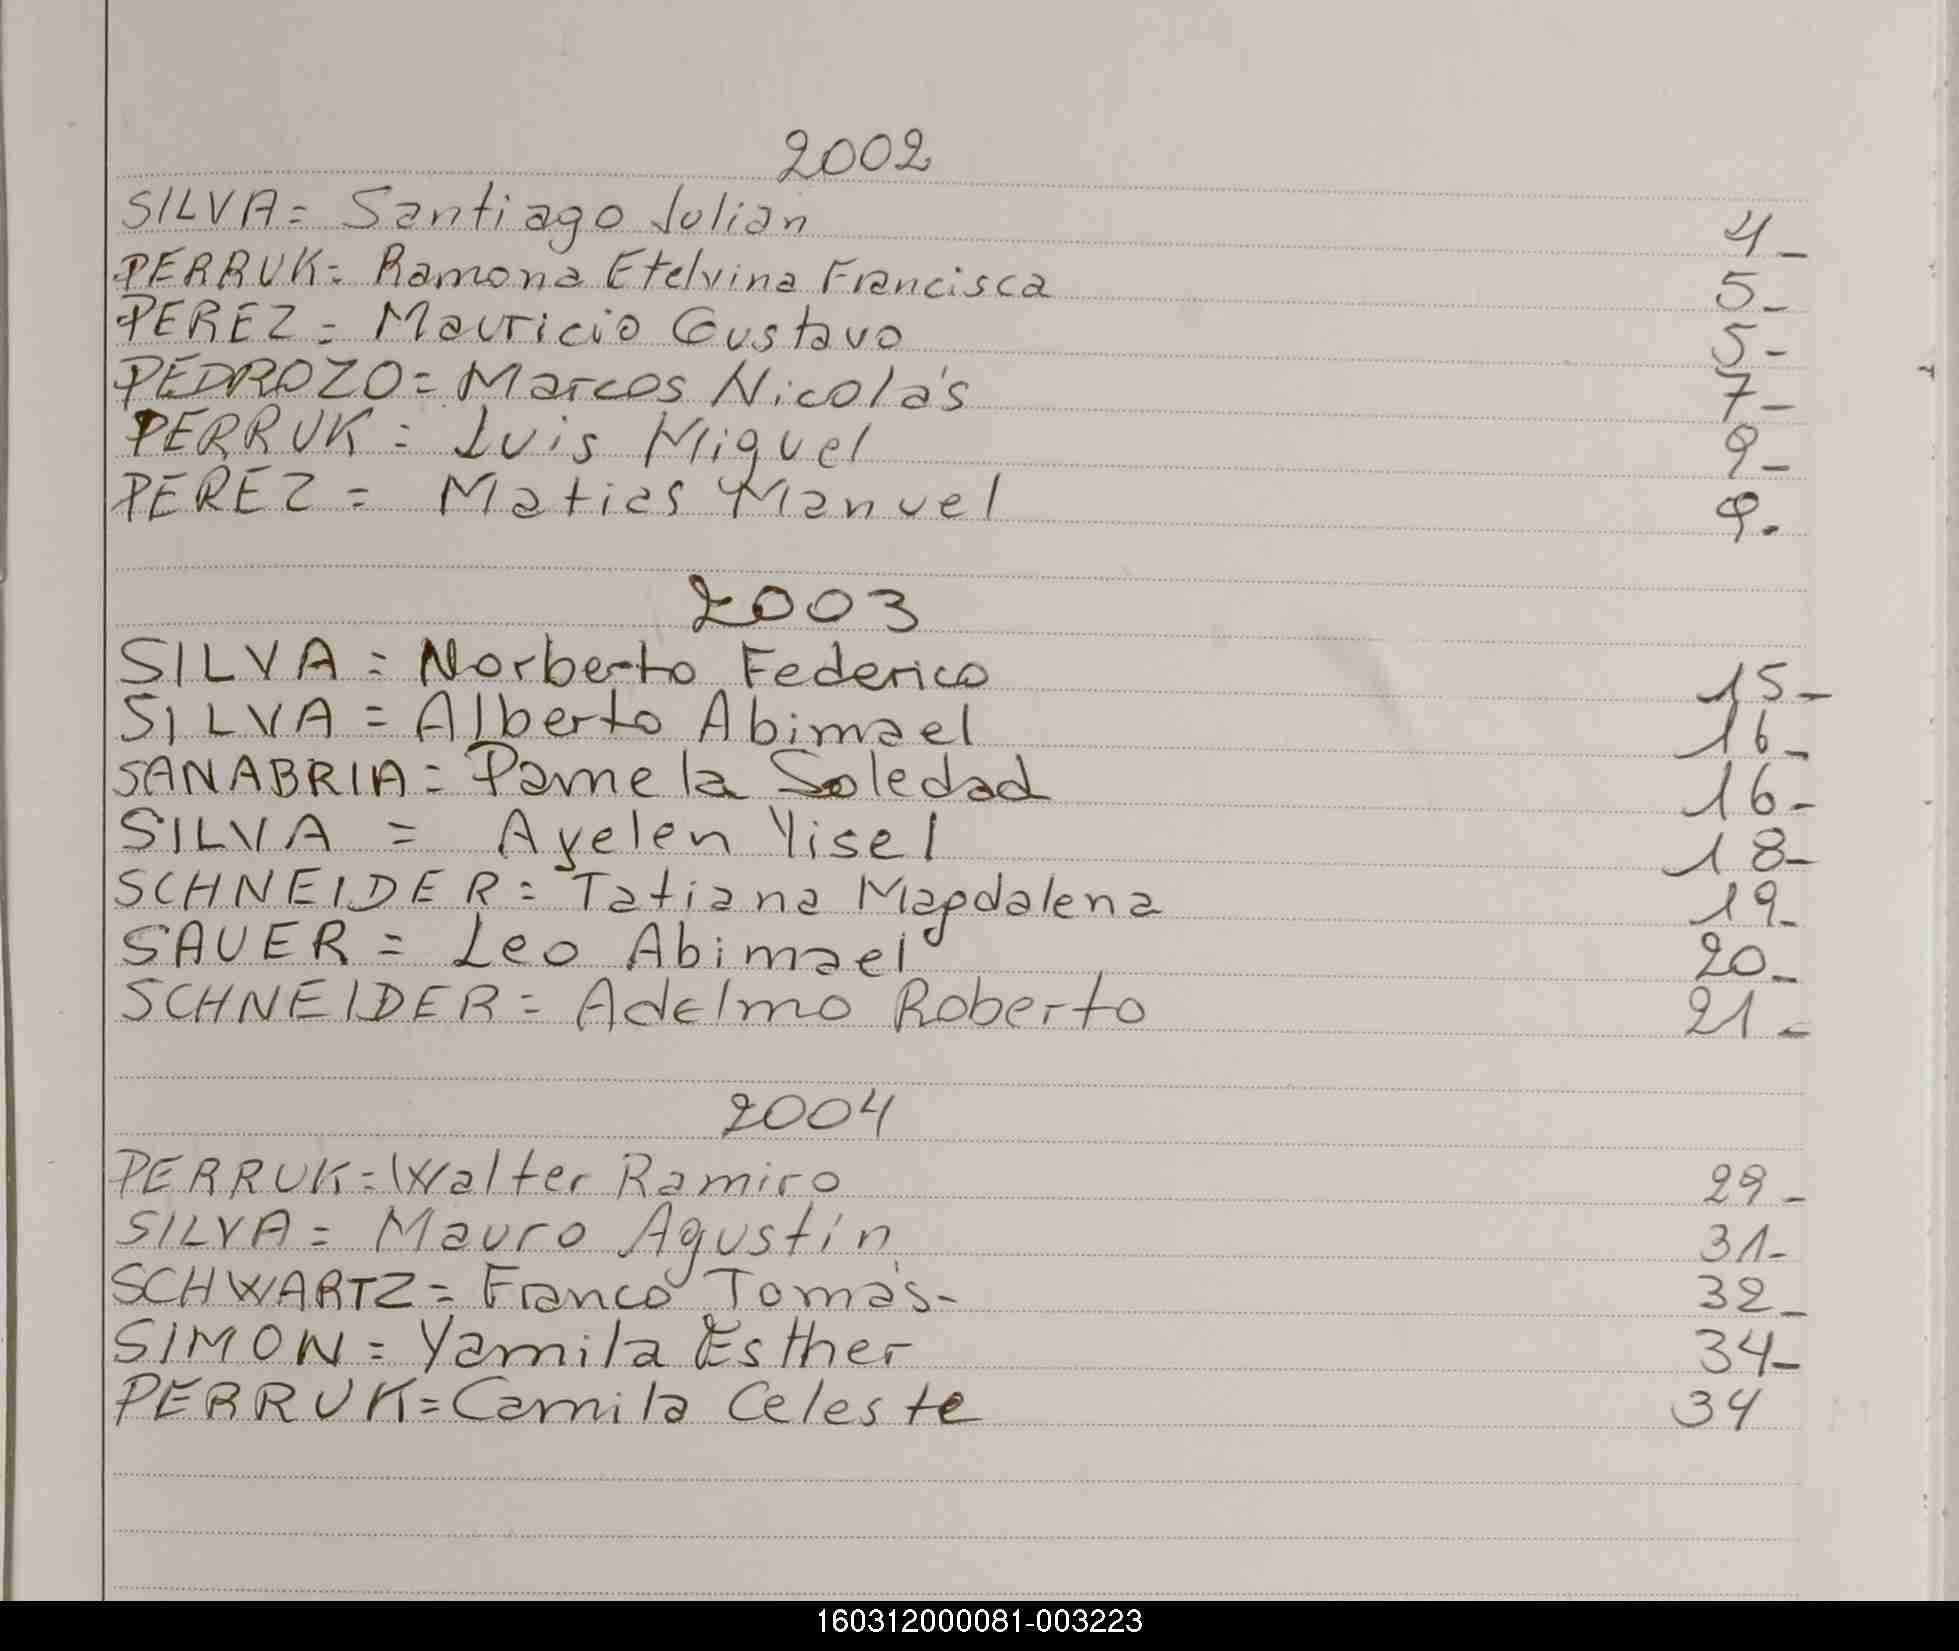 2002
SILVA = Santiago Julian 4-
PERRUK = Ramona Etelvina Francisca 5-
PEREZ = Mauricio Gustavo 5-
PEDROZO = Marcos Nicolás 7-
PERRUK = Luis Miguel 9-
PEREZ = Matias Manuel 9-
2003
SILVA = Norberto Federico 15-
SILVA = Alberto Abimael 16-
SANABRIA = Pamela Soledad 16-
SILVA = Ayelen Yisel 18-
SCHNEIDER = Tatiana Magdalena 19-
SAUER = Leo Abimael 20-
SCHNEIDER = Adelmo Roberto 21-
2004
PERRUK = Walter Ramiro 29-
SILVA = Mauro Agustín 31-
SCHWARTZ = Franco Tomás- 32-
SIMON = Yamila Esther 34-
PERRUK = Camila Celeste 34
160312000081-003223